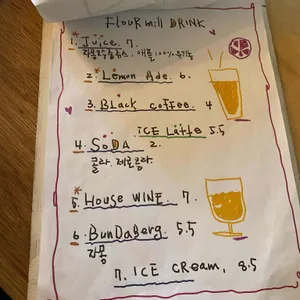 FLOUR mill DRINK
1. Juice. 7.
자몽주스, 애플 100% 유기농
2. Lemon Ade. 6.
3. BLack coffee. 4
iCE Latte 5.5
4. SoDA 2.
콜라. 제로콜라
5. House WINE. 7.
6. BunDaBerg. 5.5
자몽
7. ICE CReam. 8.5